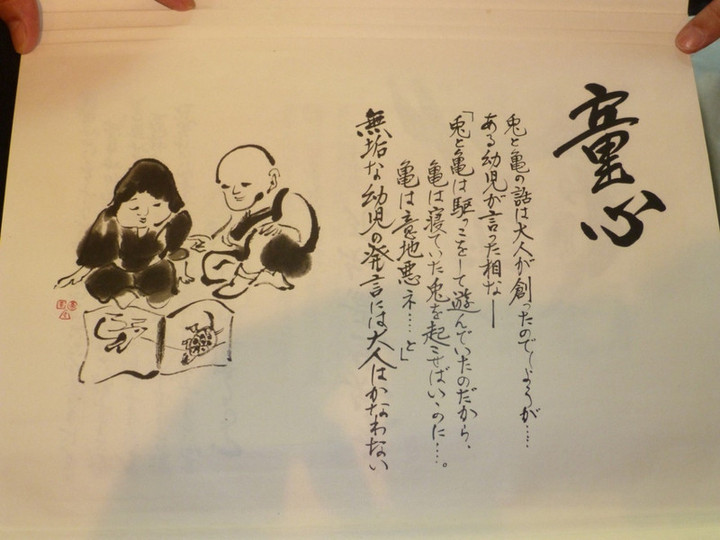 童心
兎と亀の話は大人が創ったのでしょうが……
ある幼児が言った相な―
「兎と亀は駆っこをして遊んでいたのだから、
亀は寝ていた兎を起こせばいゝのに……。
亀は意地悪ネ……と」
無垢な幼児の発言には大人はかなわない